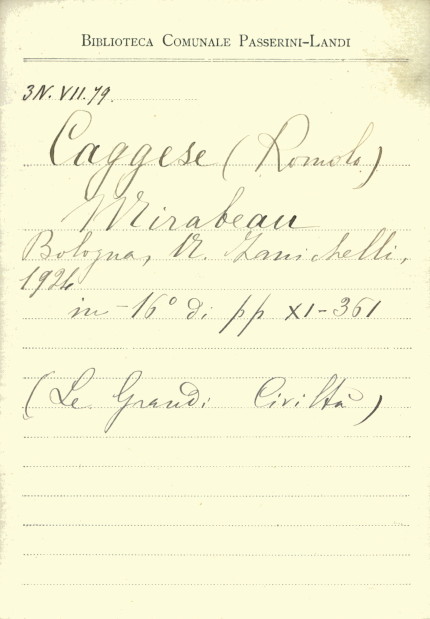 BIBLIOTECA COMUNALE PASSERINI-LANDI
3N. VII. 79.
Caggese (Romolo)
Mirabeau
Bologna, N. Zanichelli,
1924
in-16° di pp XI-361
(Le Grandi Civiltà)